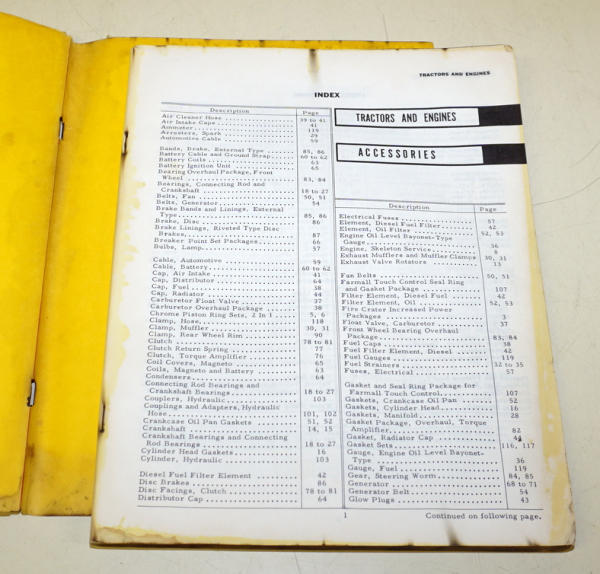 TRACTORS AND ENGINES
INDEX
Description Page
Air Cleaner Hose 39 to 41
Air Intake Caps 41
Ammeter 119
Arresters, Spark 29
Automotive Cable 59
Bands, Brake, External Type 85, 86
Battery Cable and Ground Strap 60 to 62
Battery Coils 63
Battery Ignition Unit 65
Bearing Overhaul Package, Front
Wheel 83, 84
Bearings, Connecting Rod and
Crankshaft 18 to 27
Belts, Fan 50, 51
Belts, Generator 54
Brake Bands and Linings, External
Type 85, 86
Brake, Disc 86
Brake Linings, Riveted Type Disc
Brake 87
Breaker Point Set Packages 66
Bulbs, Lamp 57
Cable, Automotive 59
Cable, Battery 60 to 62
Cap, Air Intake 41
Cap, Distributor 64
Cap, Fuel 38
Cap, Radiator 44
Carburetor Float Valve 37
Carburetor Overhaul Package 38
Chrome Piston Ring Sets, 2 In 1 5, 6
Clamp, Hose 118
Clamp, Muffler 30, 31
Clamp, Rear Wheel Rim 90
Clutch 78 to 81
Clutch Return Spring 77
Clutch, Torque Amplifier 76
Coil Covers, Magneto 65
Coils, Magneto and Battery 63
Condensers 64
Connecting Rod Bearings and
Crankshaft Bearings 18 to 27
Couplers, Hydraulic 103
Couplings and Adapters, Hydraulic
Hose 101, 102
Crankcase Oil Pan Gaskets 51, 52
Crankshaft 14, 15
Crankshaft Bearings and Connecting
Rod Bearings 18 to 27
Cylinder Head Gaskets 16
Cylinder, Hydraulic 103
Diesel Fuel Filter Element 42
Disc Brakes 86
Disc Facings, Clutch 78 to 81
Distributor Cap 64
TRACTORS AND ENGINES
ACCESSORIES
Description Page
Electrical Fuses 57
Element, Diesel Fuel Filter 42
Element, Oil Filter 52, 53
Engine Oil Level Bayonet-Type
Gauge 36
Engine, Skeleton Service 4
Exhaust Mufflers and Muffler Clamps 30, 31
Exhaust Valve Rotators 13
Fan Belts 50, 51
Farmall Touch Control Seal Ring
and Gasket Package 107
Filter Element, Diesel Fuel 42
Filter Element, Oil 52, 53
Fire Crater Increased Power
Packages 3
Float Valve, Carburetor 37
Front Wheel Bearing Overhaul
Package 83, 84
Fuel Caps 38
Fuel Filter Element, Diesel 42
Fuel Gauges 119
Fuel Strainers 32 to 35
Fuses, Electrical 57
Gasket and Seal Ring Package for
Farmall Touch Control 107
Gaskets, Crankcase Oil Pan 52
Gaskets, Cylinder Head 16
Gaskets, Manifold 28
Gasket Package, Overhaul, Torque
Amplifier 82
Gasket, Radiator Cap 44
Gasket Sets 116, 117
Gauge, Engine Oil Level Bayonet-
Type 36
Gauge, Fuel 119
Gear, Steering Worm 84, 85
Generator 68 to 71
Generator Belt 54
Glow Plugs 43
1 Continued on following page.